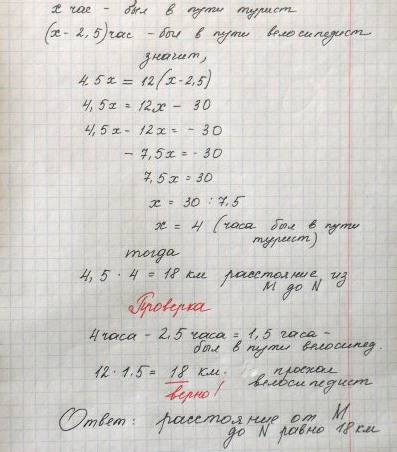 x час - был в пути турист
(x - 2,5) час - был в пути велосипедист
значит,
4,5x = 12(x-2,5)
4,5x = 12x - 30
4,5x - 12x = - 30
- 7,5x = - 30
7,5x = 30
x = 30 : 7,5
x = 4 (часа был в пути
турист)
тогда
4,5 · 4 = 18 км расстояние из
M до N
Проверка
4 часа - 2,5 часа = 1,5 часа -
был в пути велосипед.
12 · 1.5 = 18 км. проехал
велосипедист
верно!
Ответ: расстояние от M
до N равно 18 км